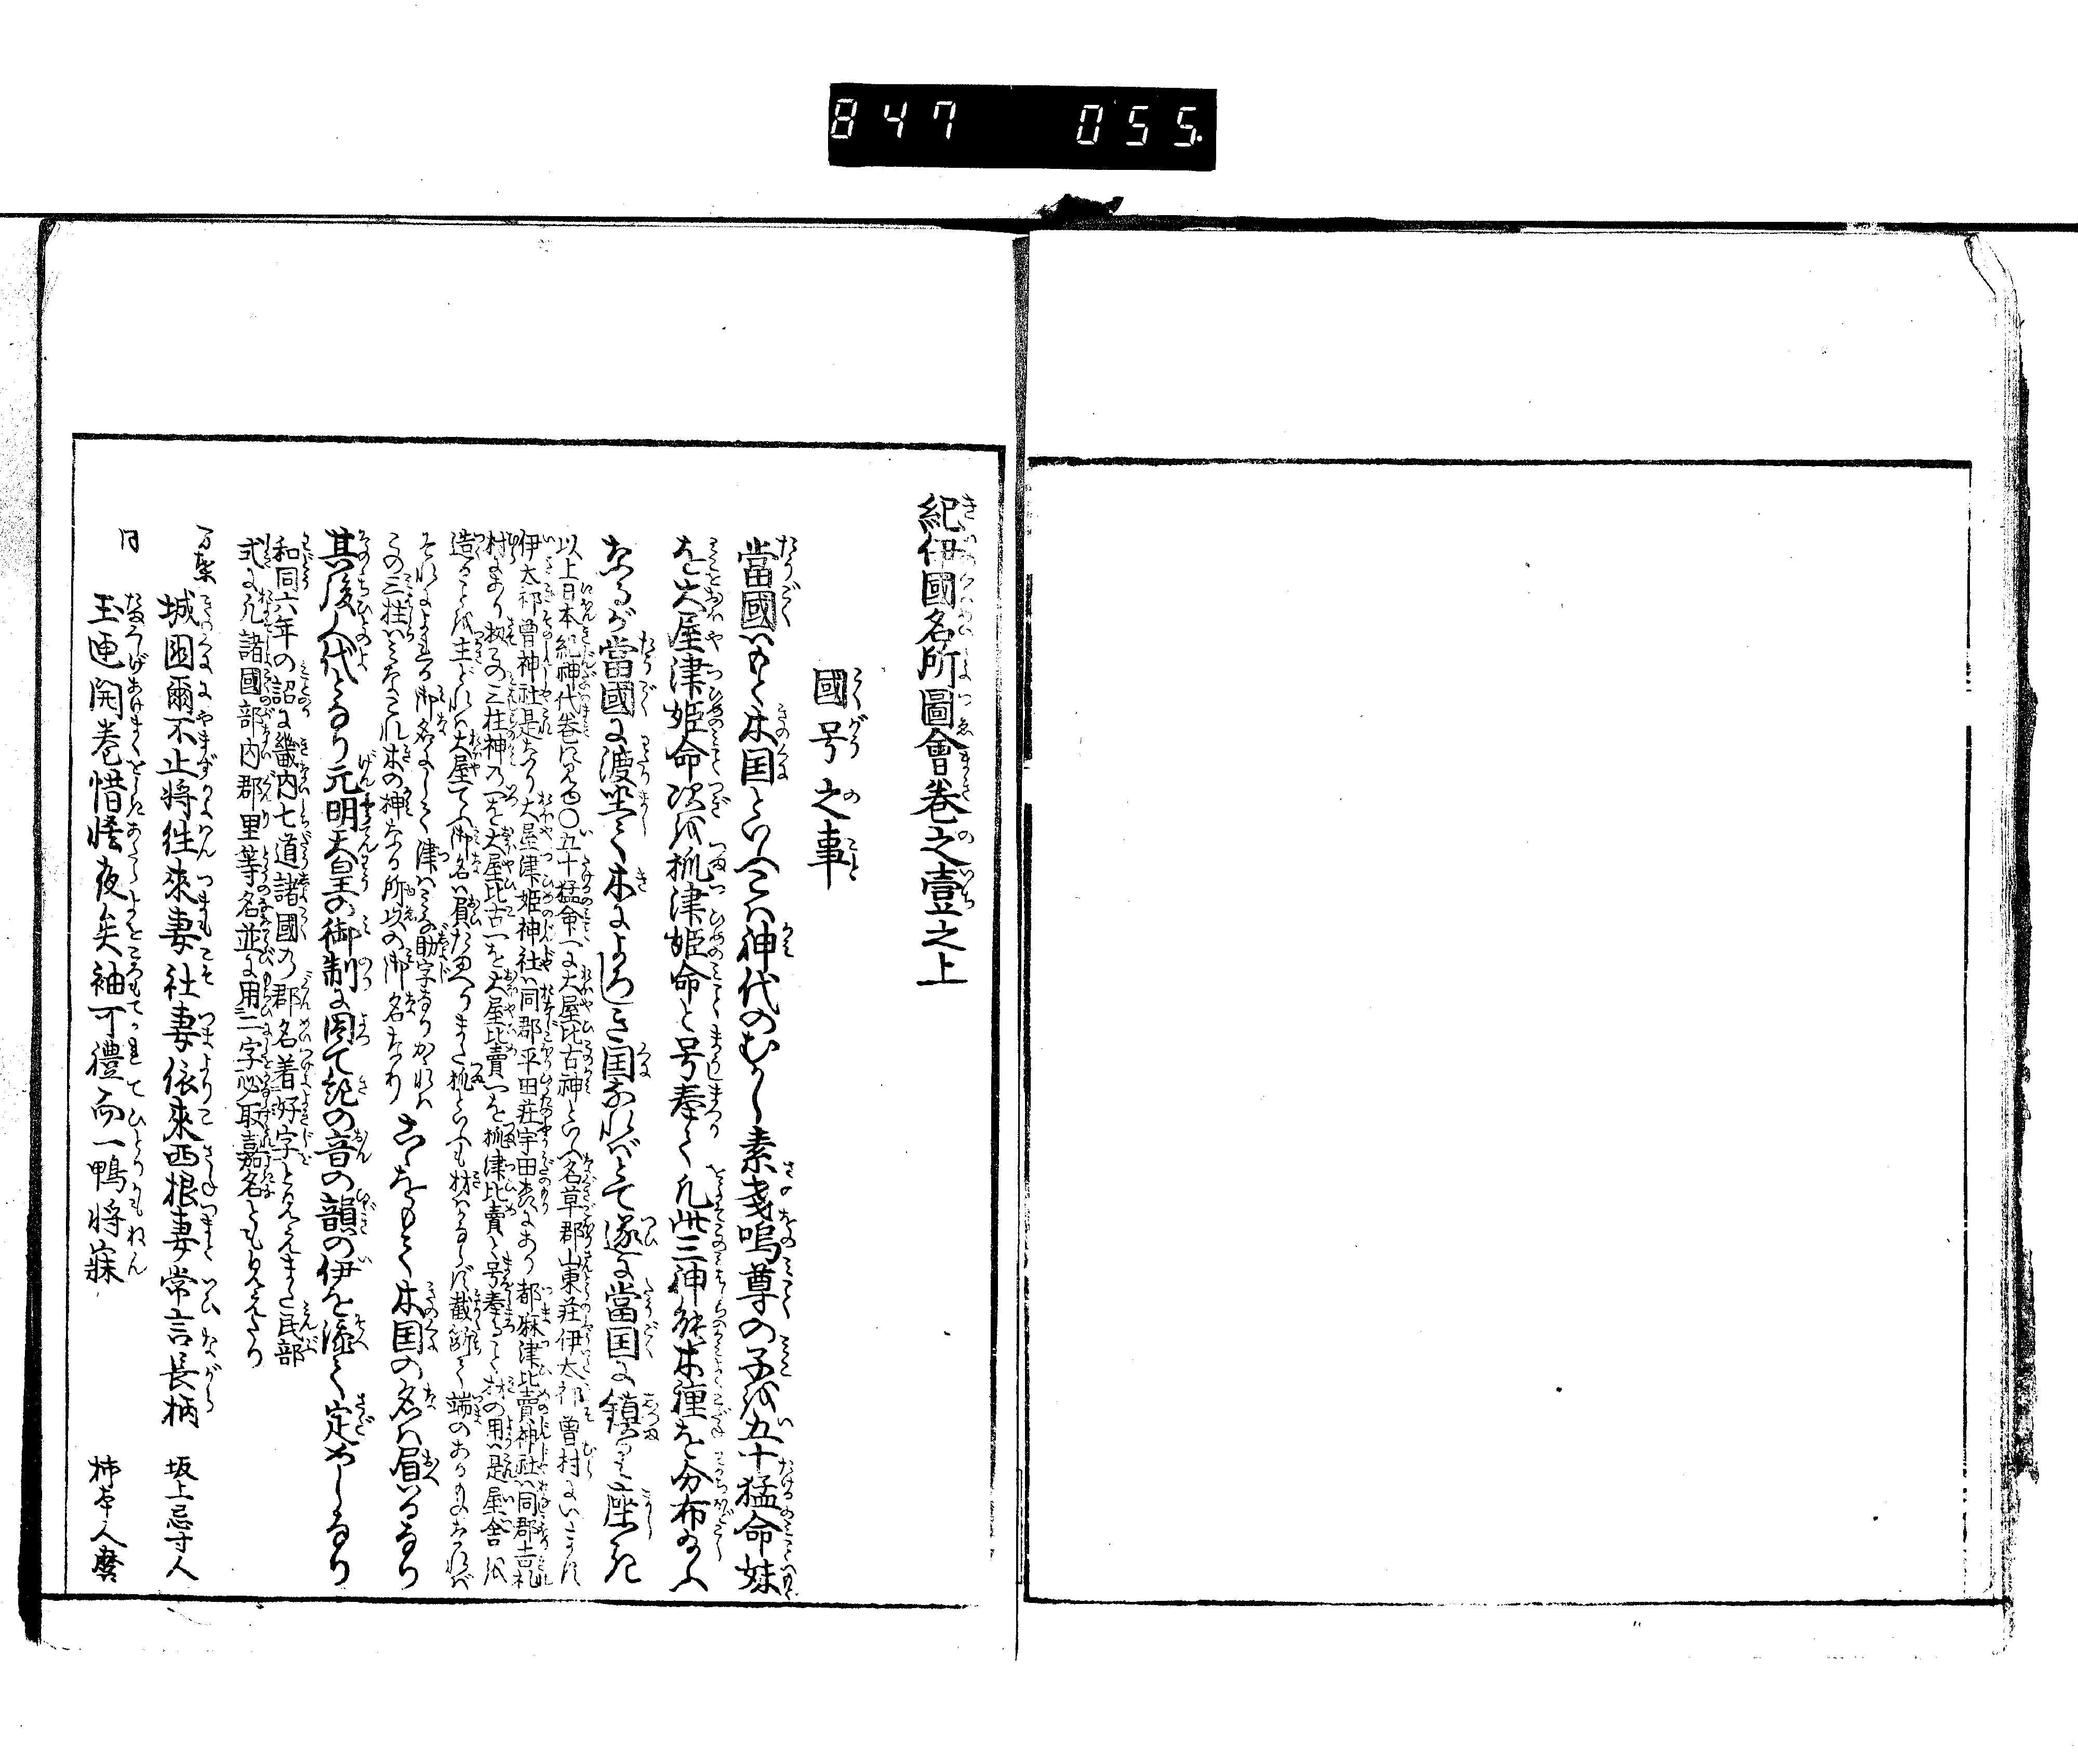 847 055
紀伊國名所圖會卷之壹之上
國号之事
當國はもと木国といへるは神代のむかし素戔嗚尊の子を五十猛命妹
を大屋津姫命次を抓津姫命と号奉る凡此三神能木種を分布給ふ
なるが當國に渡坐て木によろしき国なればとて遂に當国に鎮り座き
以上日本紀神代卷に見ゆ〇五十猛命一に大屋比古神といふ名草郡山東荘伊太祁曽村にいます
伊太祁曽神社是なり大屋津姫神社は同郡平田荘宇田森にあり都麻津比賣神社は同郡吉礼
村にあり扨この三柱神乃一を大屋比古一を大屋比賣一を抓津比賣と号奉ること材の用は是屋舎を
造ることを主とすれば大屋てふ御名は負たまへりまた抓といふも材はかならず截断て端のあるものなれば
それによれる御名にして津はみな助字なりかゝれば
この三柱はみなこれ木の神なる所以の御名なり
こをもて木国の名は負へるなり
其後人代となり元明天皇の御制に因て紀の音の韻の伊を添て定めしなり
和同六年の詔に畿内七道諸國乃郡名着好字と見えまた民部
式に凡諸國部内郡里等名並に用二字必取嘉名とも見えたり
万葉 城國爾不止將徃來妻社妻依來西根妻常言長柄 坂上忌寸人
同 玉匣開卷惜𢠵夜矣袖可禮而一鴨將寐 柿本人麿